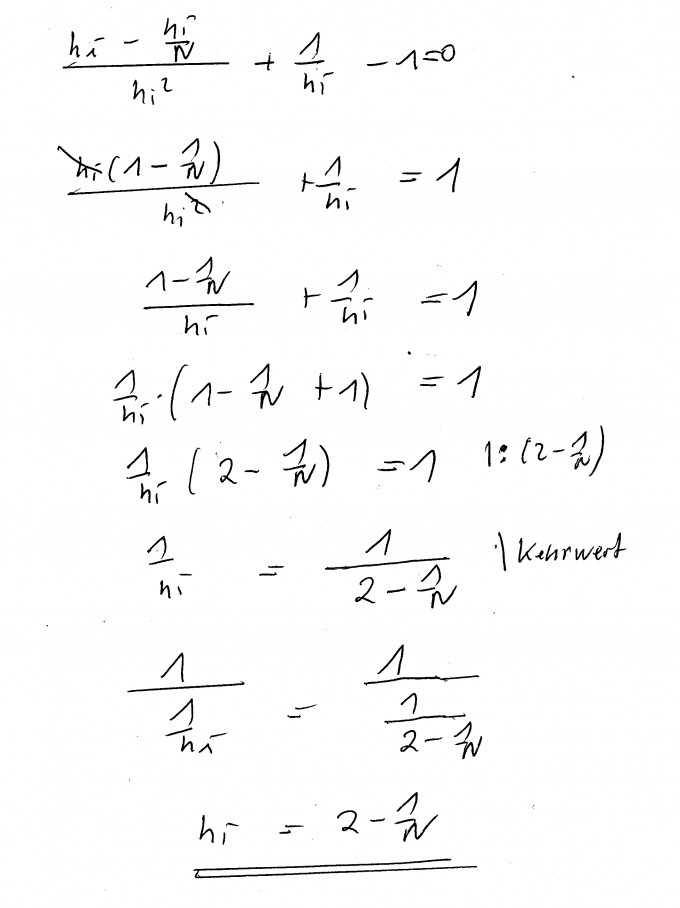 (hi - hi/N)/hi² + 1/hi - 1=0
hi(1 - 1/N)/hi² + 1/hi = 1
(1 - 1/N)/hi + 1/hi = 1
1/hi · (1 - 1/N + 1) = 1
1/hi (2 - 1/N) = 1 | : (2 - 1/N)
1/hi = 1/(2 - 1/N) | Kehrwert
1/(1/hi) = 1/(1/(2 - 1/N))
hi = 2 - 1/N